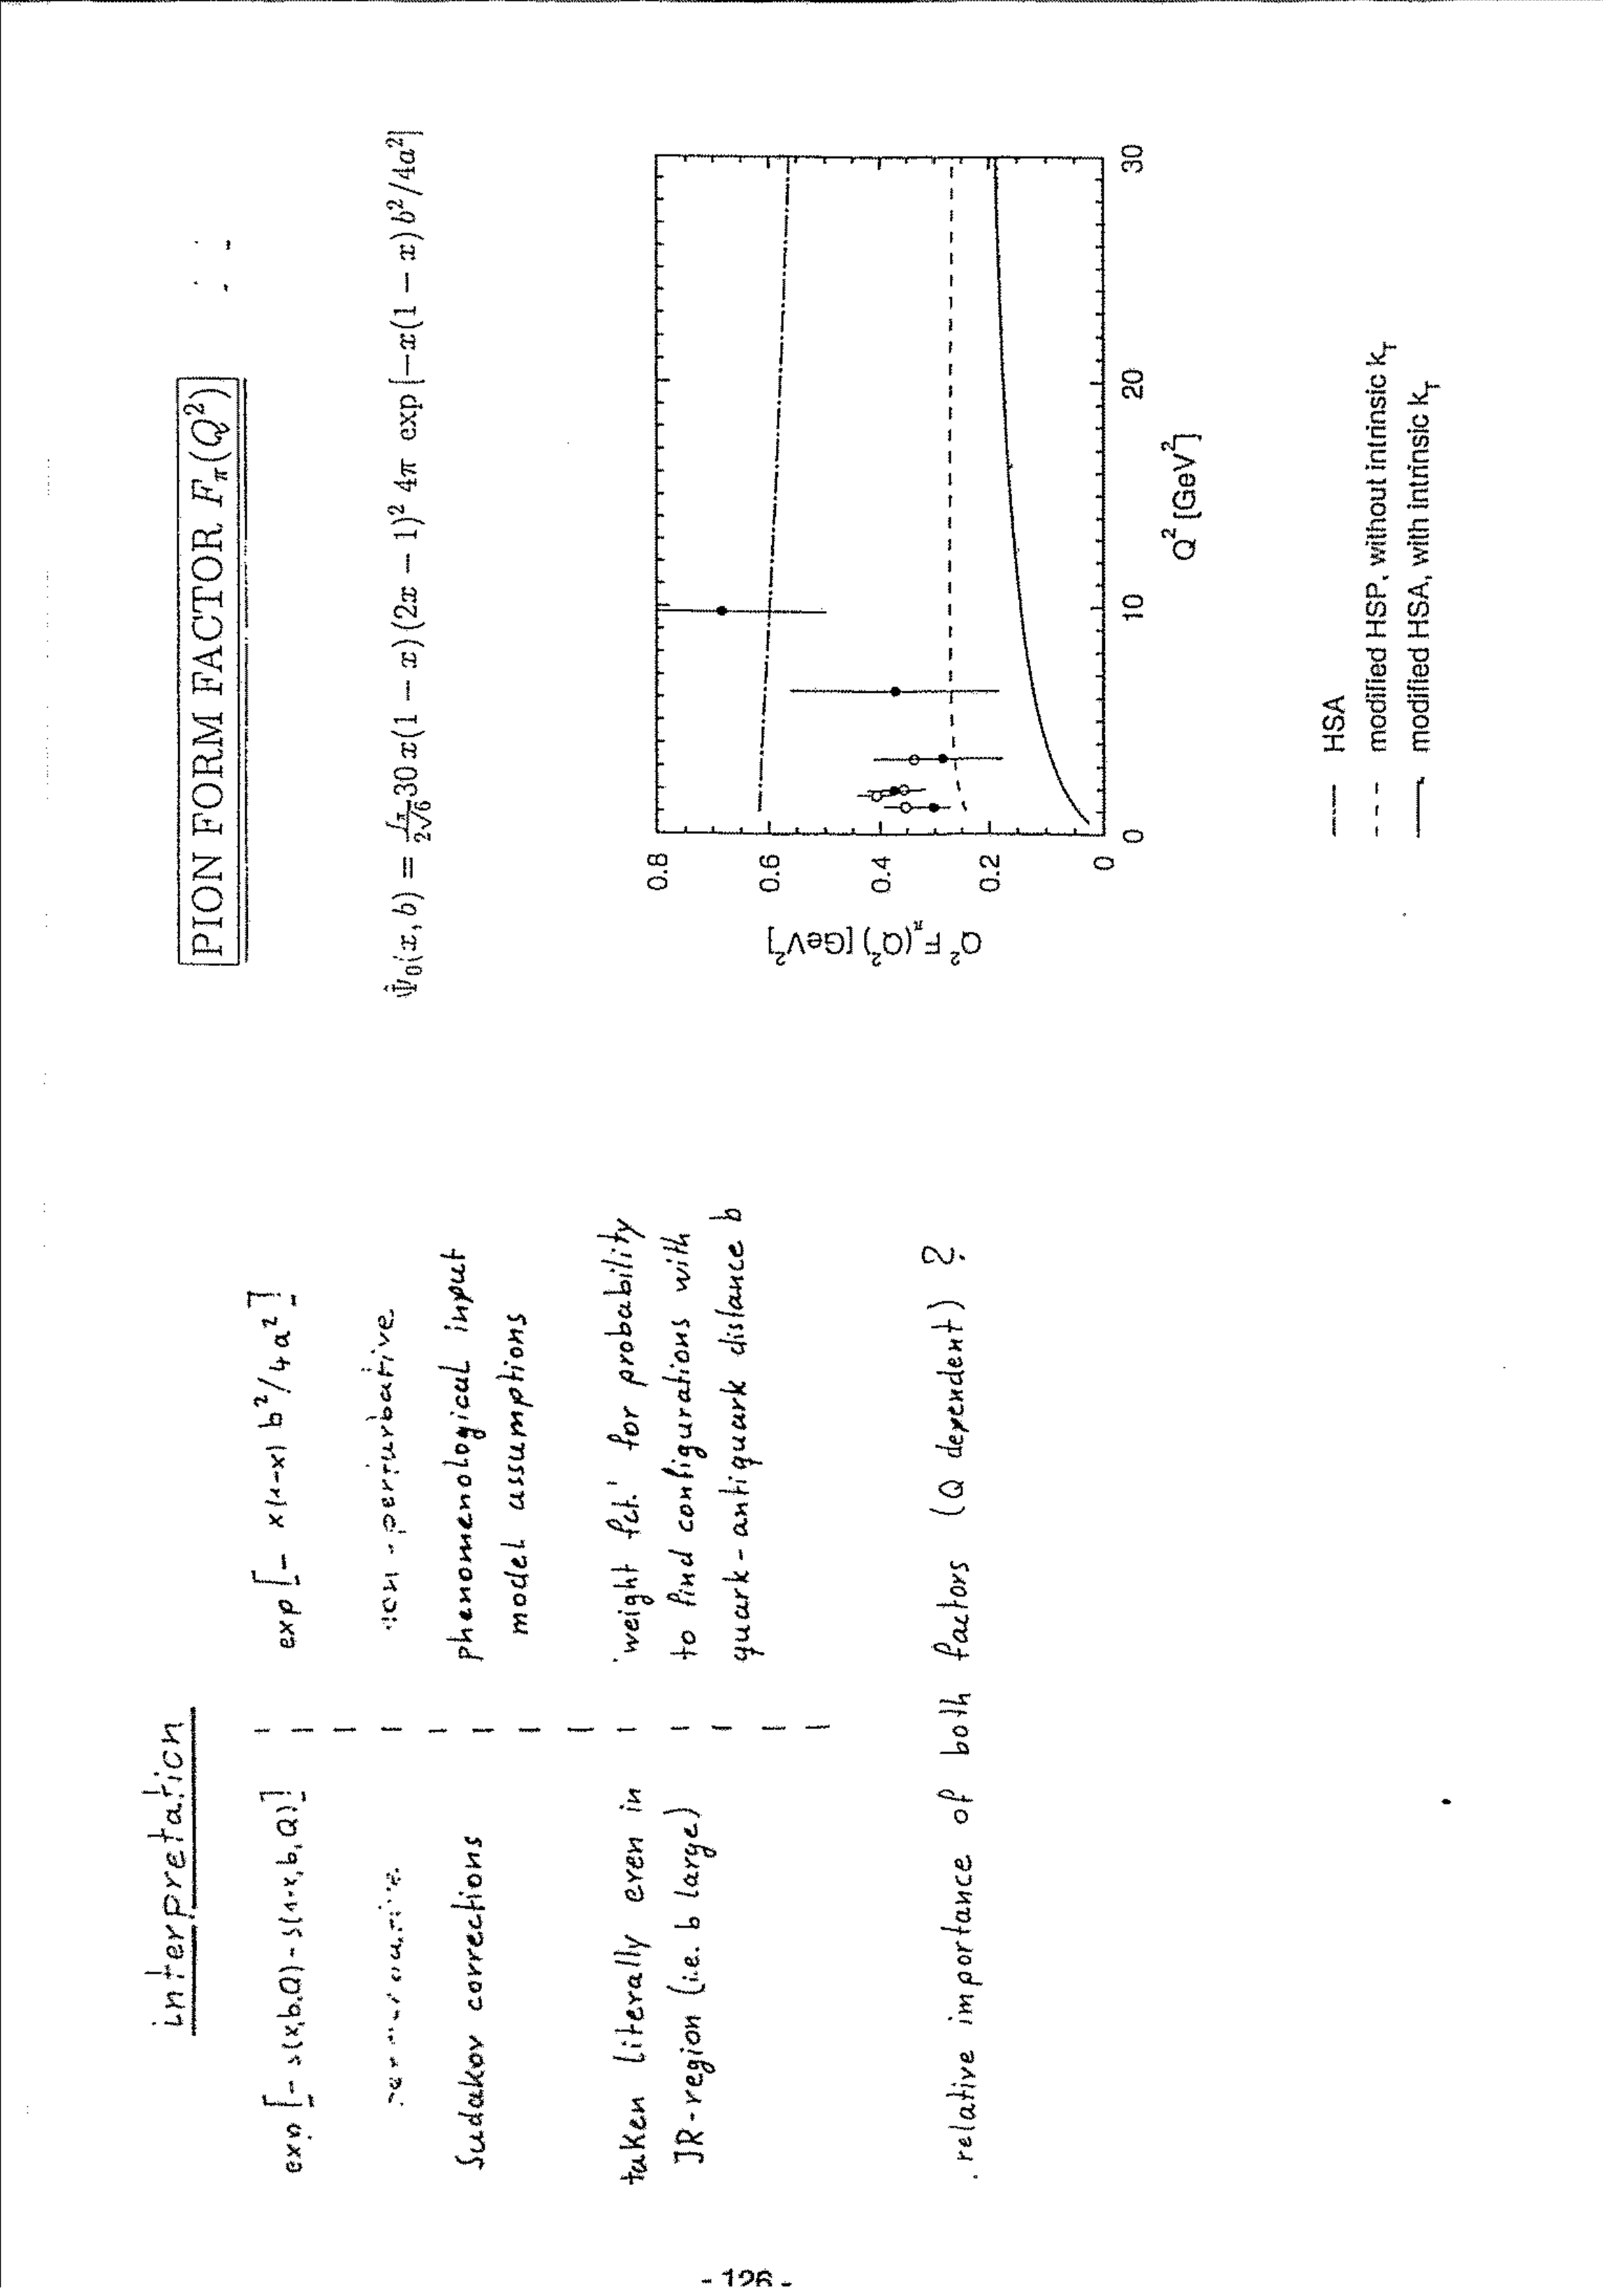 interpretation
exp [- s(x,b,Q) - s(1-x,b,Q)] | exp [- x(1-x) b²/4a²]
non-perturbative
Sudakov corrections | phenomenological input
model assumptions
taken literally even in | 'weight fct.' for probability
IR-region (i.e. b large) | to find configurations with
quark-antiquark distance b
relative importance of both factors (Q dependent) ?
- 126 -
PION FORM FACTOR F_π(Q²)
Ψ̂₀(x, b) = f_π/2√6 30 x(1 − x)(2x − 1)² 4π exp [−x(1 − x) b²/4a²]
Q² F_π(Q²) [GeV²]
0.8
0.6
0.4
0.2
0
0 10 20 30
Q² [GeV²]
HSA
modified HSP, without intrinsic k_T
modified HSA, with intrinsic k_T